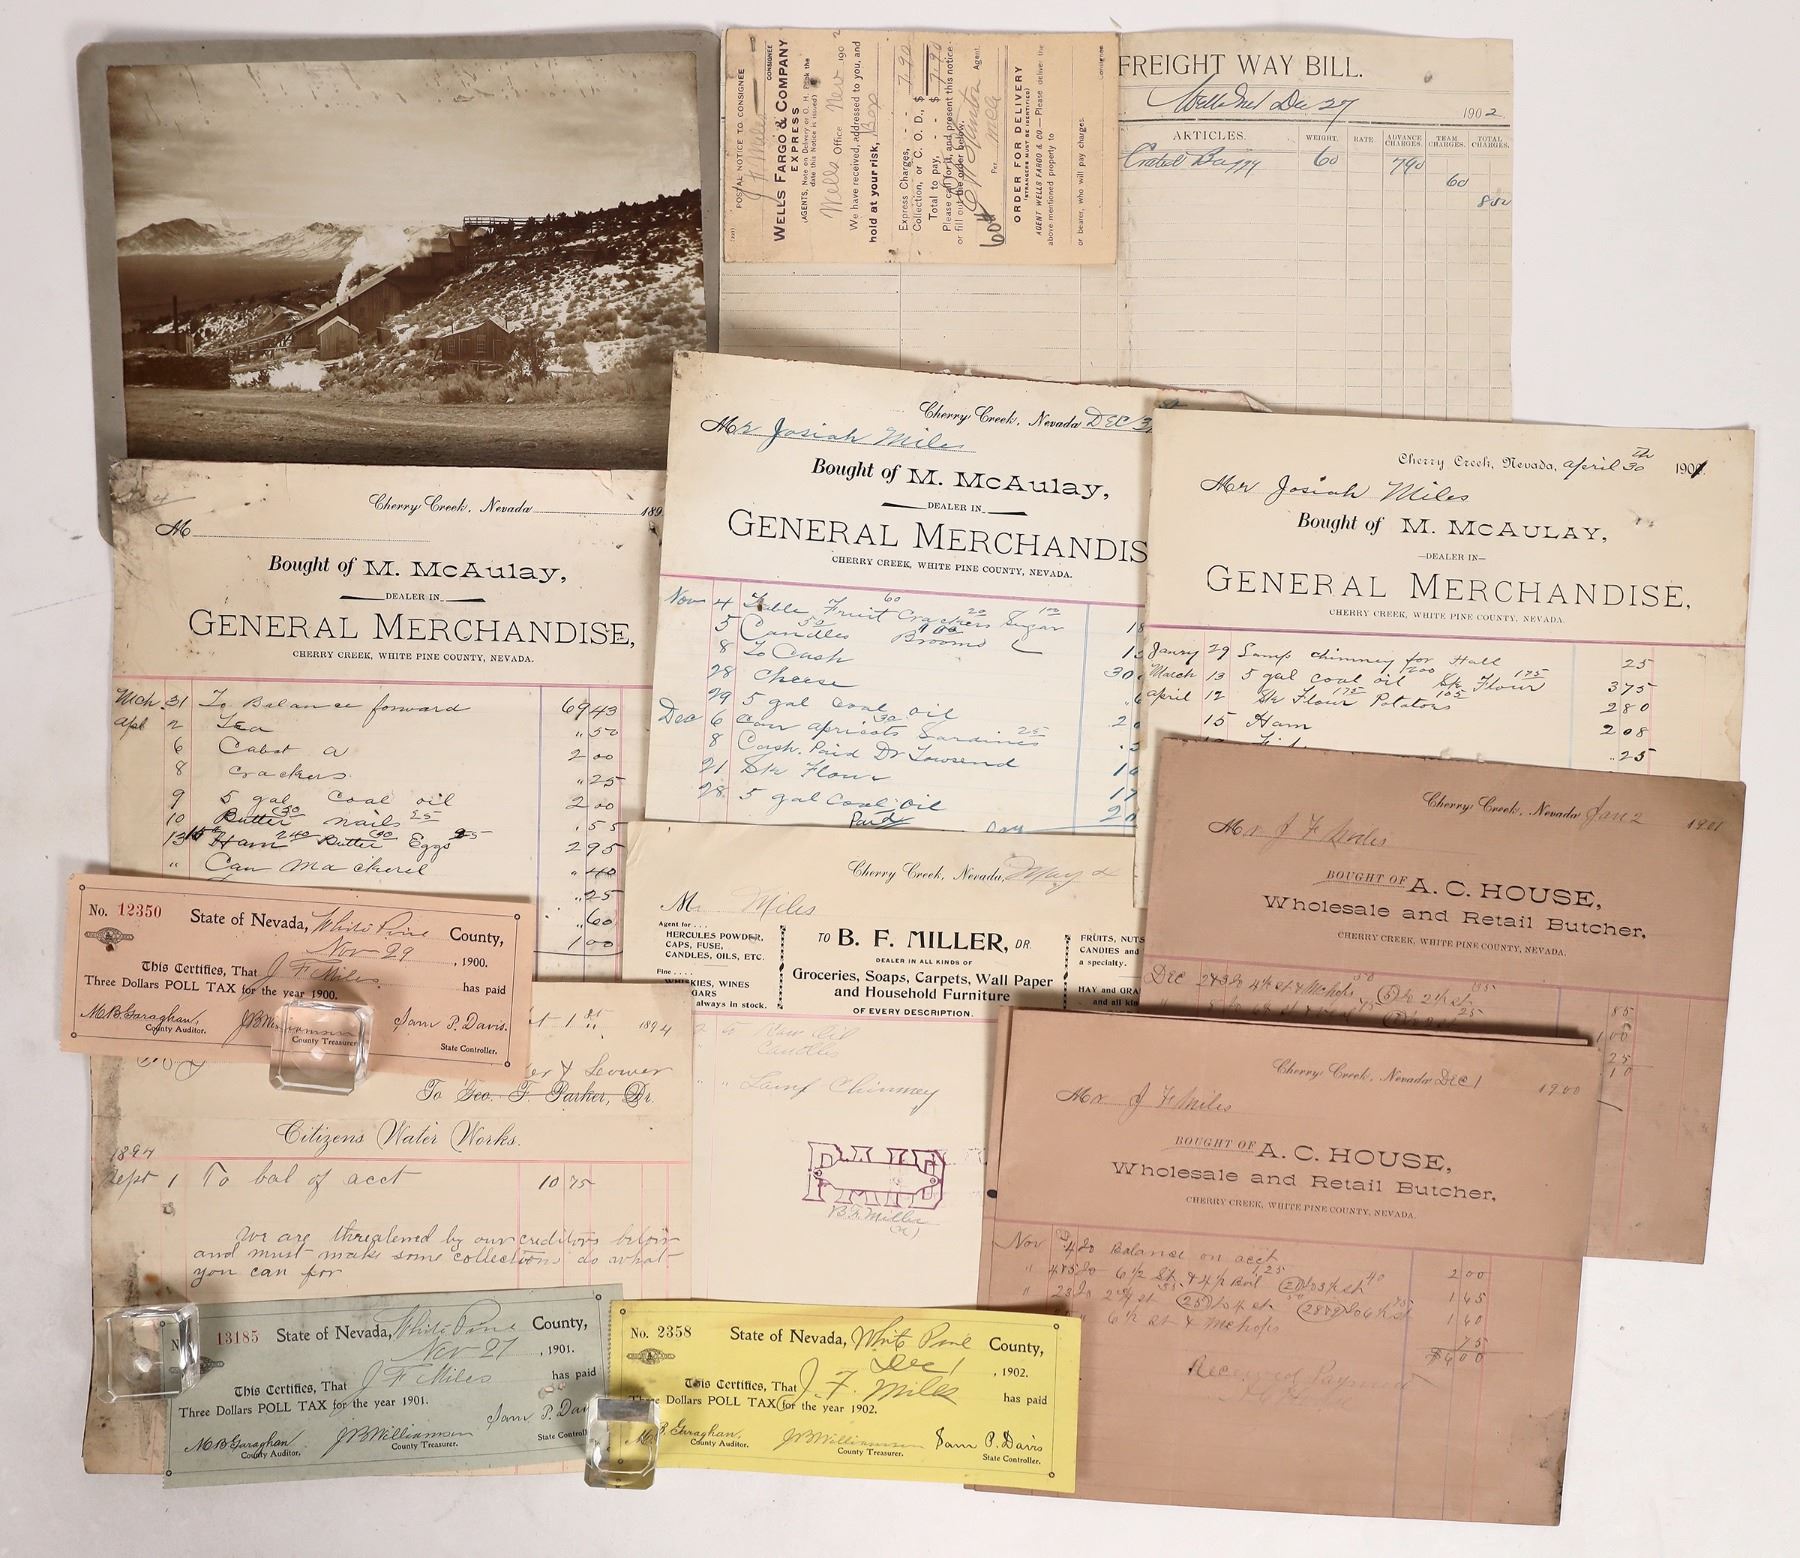 POSTAL NOTICE TO CONSIGNEE
CONSIGNEE
WELLS FARGO & COMPANY
EXPRESS
Wells Office Nev 1902
We have received, addressed to you, and
hold at your risk, Box
Express Charges, - - $ 7.90
Collection, or C. O. D., $
Total to pay, - - - $ 7.90
Please call for it, and present this notice
or fill out the order below.
Agent.
Per
ORDER FOR DELIVERY
(STRANGERS MUST BE IDENTIFIED)
AGENT WELLS FARGO & CO.—Please deliver the
above mentioned property to
or bearer, who will pay charges.
Consignee
FREIGHT WAY BILL.
Dec 27 1902
ARTICLES. WEIGHT. RATE ADVANCE CHARGES. TEAM CHARGES. TOTAL CHARGES.
60 790
60
Cherry Creek, Nevada DEC 31
Mr Josiah Miles
Bought of M. McAulay,
DEALER IN
GENERAL MERCHANDIS
CHERRY CREEK, WHITE PINE COUNTY, NEVADA.
Nov 4 Table Fruit 60 Crackers 20 Sugar 1 00
5 Candles 50 Brooms 1 00
8 To Cash
28 Cheese
29 5 gal coal oil
Dec 6 Can apricots 30 Sardines 25
8 Cash Paid Dr Townsend
21 Sk Flour
28 5 gal coal oil
Cherry Creek, Nevada, April 30th 1901
Mr Josiah Miles
Bought of M. McAULAY,
—DEALER IN—
GENERAL MERCHANDISE,
CHERRY CREEK, WHITE PINE COUNTY, NEVADA.
Janry 29 Lamp chimney for Hall 25
March 13 5 gal coal oil 200 Sk Flour 175 375
April 12 Sk Flour 175 Potatoes 105 280
15 Ham 208
25
Cherry Creek, Nevada 189
M
Bought of M. McAulay,
DEALER IN
GENERAL MERCHANDISE,
CHERRY CREEK, WHITE PINE COUNTY, NEVADA.
Mch 31 To Balance forward 6943
Apl 2 Tea 50
6 200
8 crackers 25
9 5 gal coal oil 200
10 Butter 30 nails 25 55
13 Ham 240 Butter Eggs 295
" Can Mackerel 40
25
60
100
Cherry Creek, Nevada, May
M Miles
TO B. F. MILLER, DR.
DEALER IN ALL KINDS OF
Groceries, Soaps, Carpets, Wall Paper
and Household Furniture
OF EVERY DESCRIPTION.
Agent for . . .
HERCULES POWDER,
CAPS, FUSE,
CANDLES, OILS, ETC.
Fine . . . .
WHISKIES, WINES
always in stock.
FRUITS, NUTS
CANDIES and
a specialty.
HAY and GRA
and all kin
Candles
" Lamp Chimney
PAID
B. F. Miller
Cherry Creek, Nevada Jan 2 1901
Mr J F Miles
BOUGHT OF A. C. HOUSE,
Wholesale and Retail Butcher,
CHERRY CREEK, WHITE PINE COUNTY, NEVADA.
Dec
85
100
25
10
Cherry Creek, Nevada Dec 1 1900
Mr J F Miles
BOUGHT OF A. C. HOUSE,
Wholesale and Retail Butcher,
CHERRY CREEK, WHITE PINE COUNTY, NEVADA.
Nov Balance on acct 200
165
160
75
$600
Received Payment
No. 12350 State of Nevada, White Pine County,
Nov 29, 1900.
This Certifies, That J F Miles has paid
Three Dollars POLL TAX for the year 1900.
M B Garaghan, County Auditor.
J B Williamson County Treasurer.
Sam P. Davis. State Controller.
1st 1894
To Geo. F. Parker, Dr.
Citizens Water Works.
1894
Sept 1 To bal of acct 10 75
We are threatened by our creditors below
and must make some collections do what
you can for
13185 State of Nevada, White Pine County,
Nov 27, 1901.
This Certifies, That J F Miles has paid
Three Dollars POLL TAX for the year 1901.
M B Garaghan, County Auditor.
J B Williamson County Treasurer.
Sam P. Davi
State Controll
No. 2358 State of Nevada, White Pine County,
Dec 1, 1902.
This Certifies, That J. F. Miles has paid
Three Dollars POLL TAX for the year 1902.
M. B. Garaghan, County Auditor.
J B Williamson County Treasurer.
Sam P. Davis State Controller.